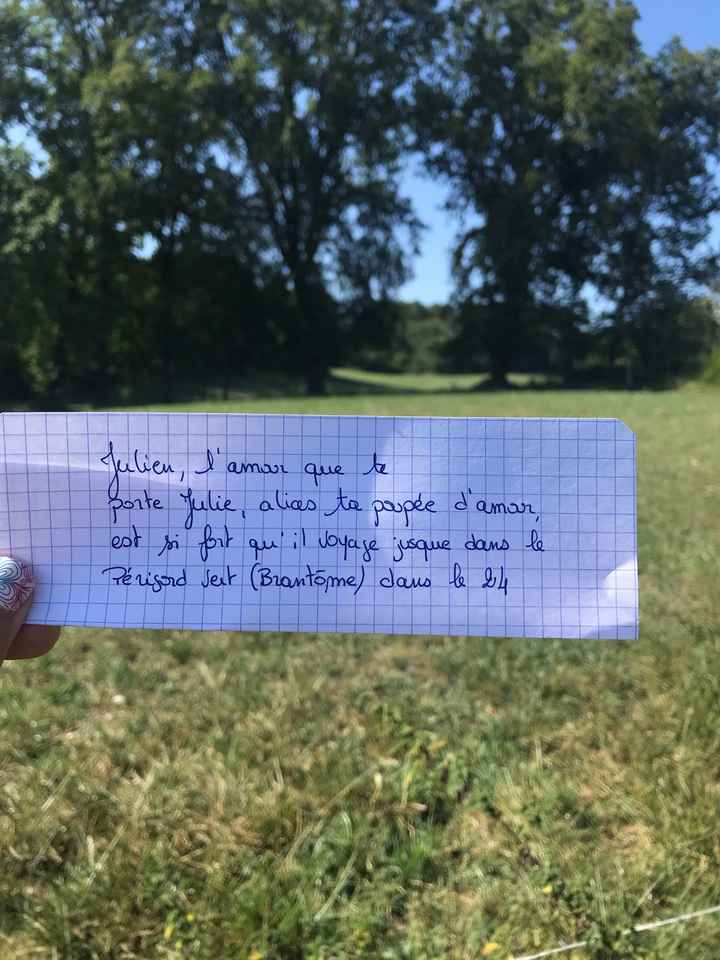 Julien, l'amour que te
porte Julie, alias ta poupée d'amour,
est si fort qu'il voyage jusque dans le
Périgord Vert (Brantôme) dans le 24